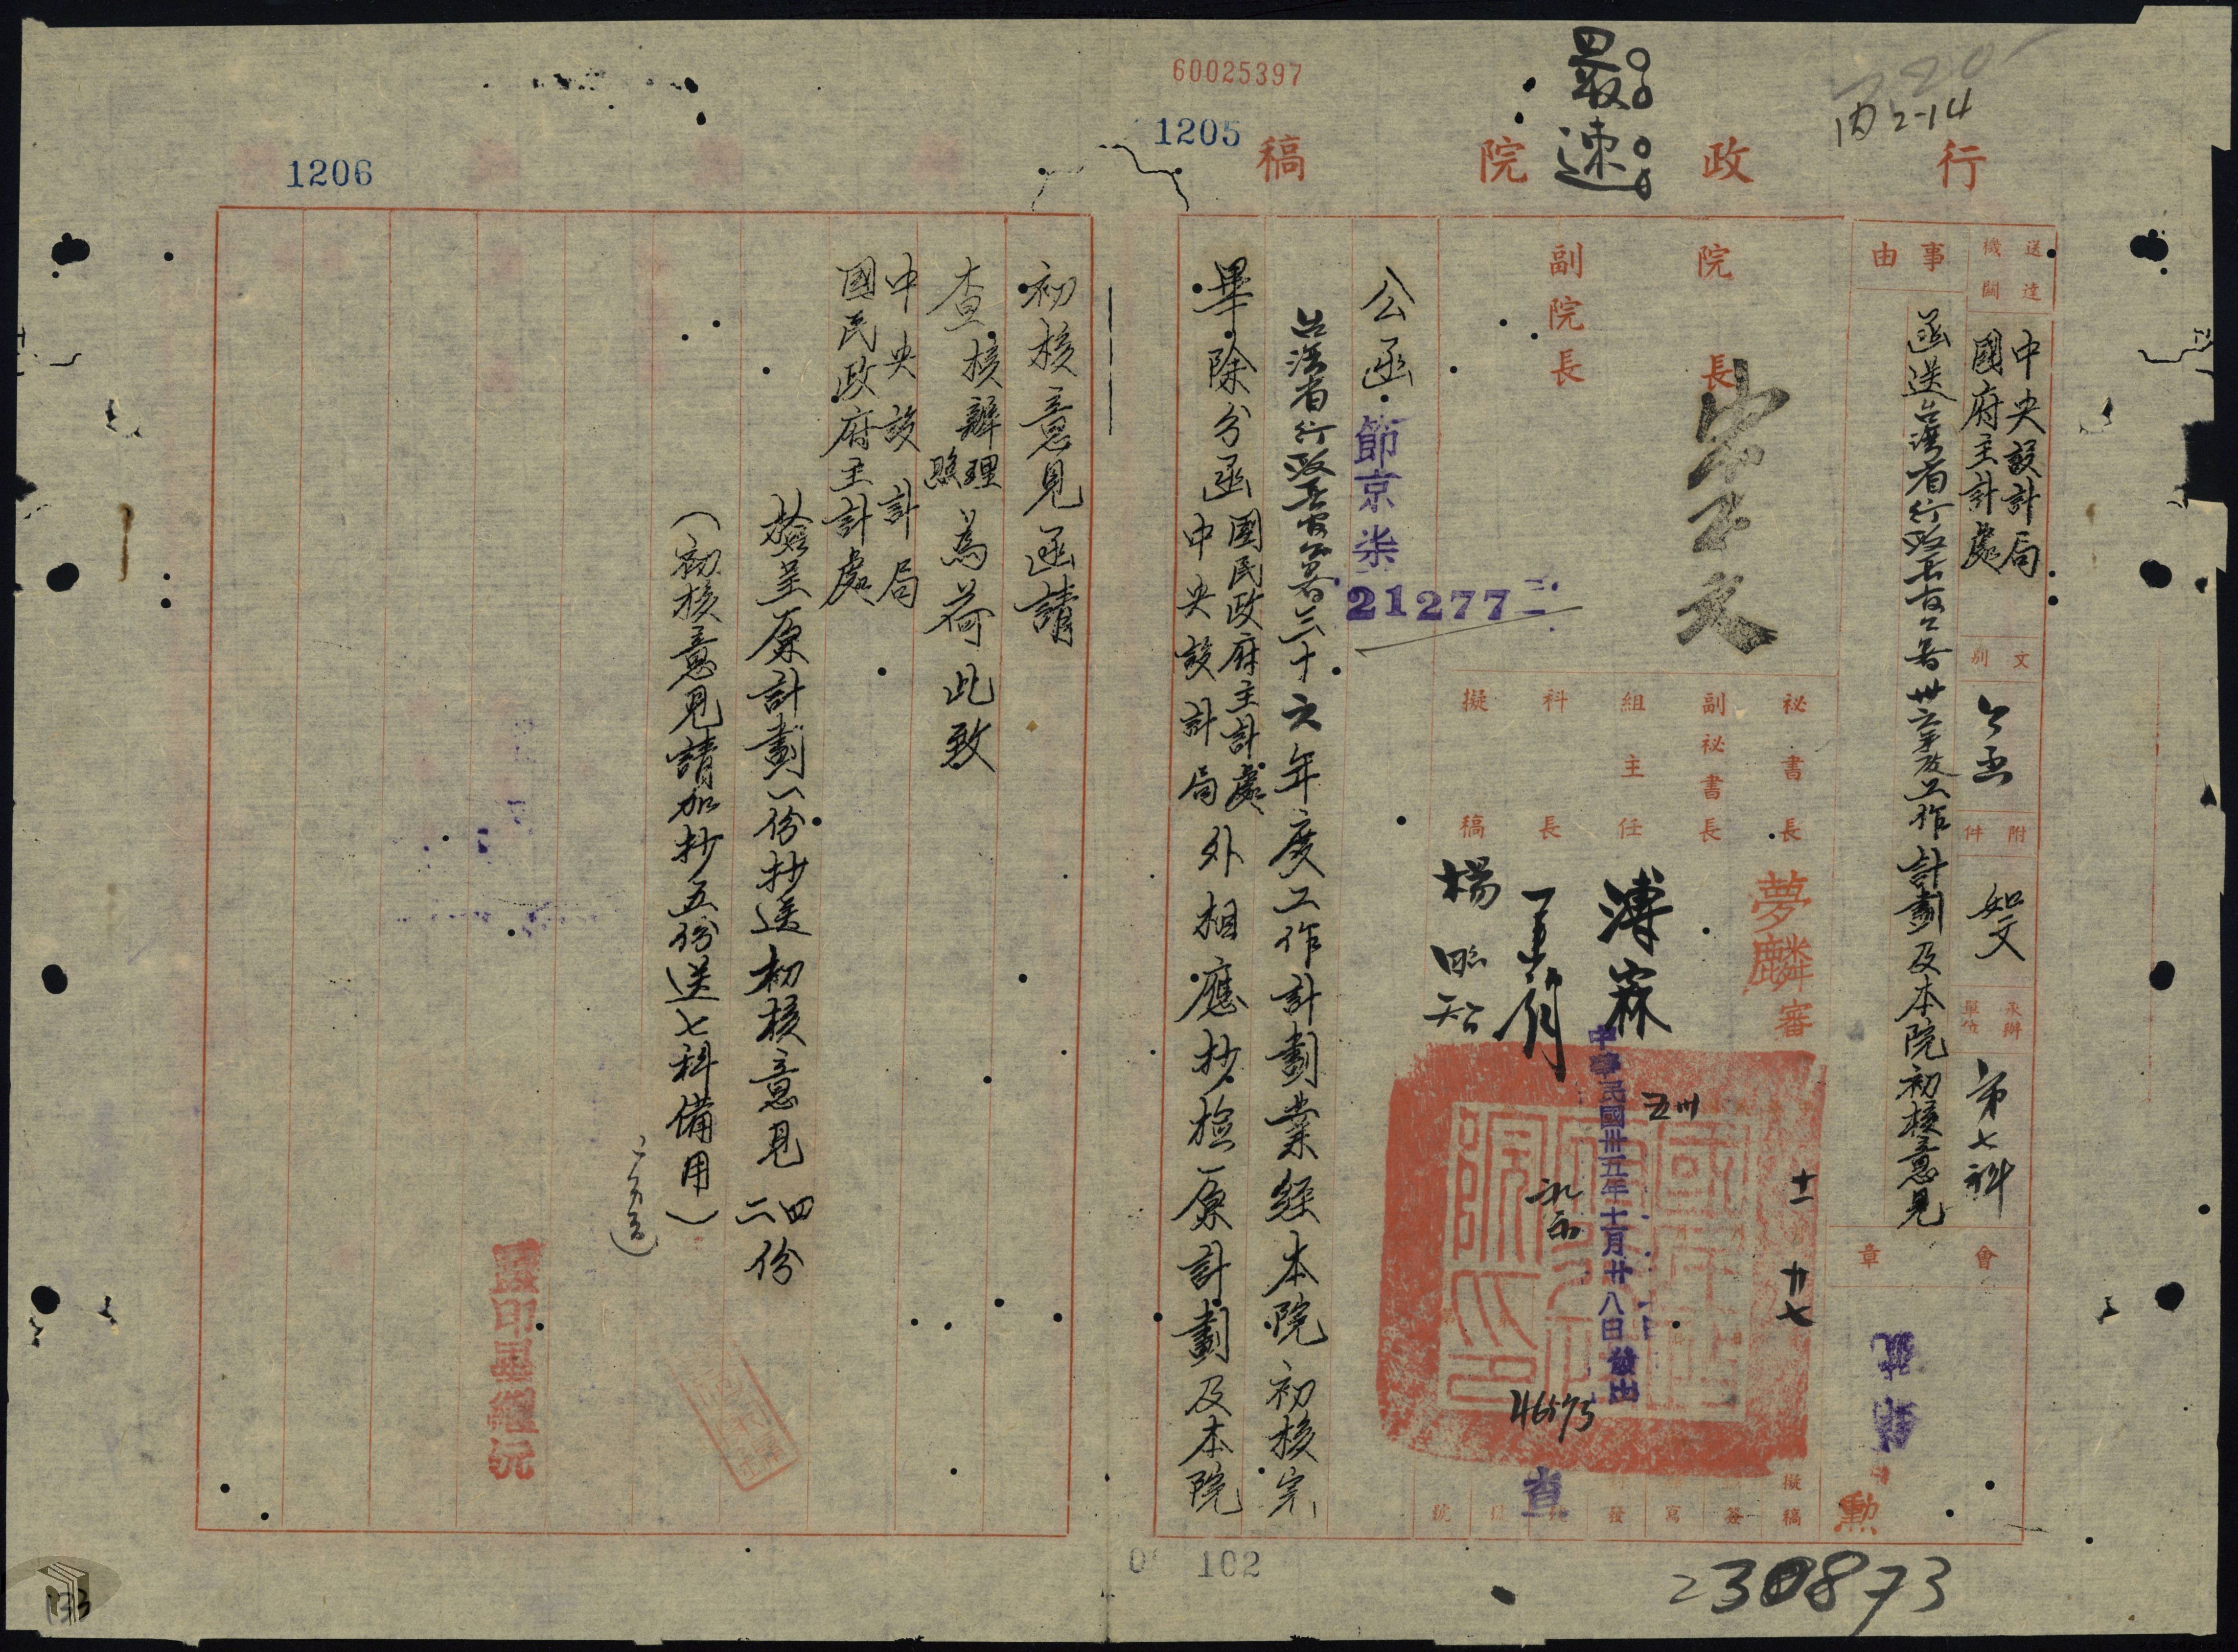 60025397
1205
1206
最速
內2-14
行政院稿
送達機關
中央設計局
國府主計處
文別
公函
附件
如文
承辦單位
第七科
事由
函送台灣省行政長官公署卅六年度工作計劃及本院初核意見
會章
院長
宋子文
副院長
秘書長
夢麟
審
副秘書長
組主任
科長
擬稿
楊昭智
十一 廿七
中華民國卅五年十一月廿八日發出
46573
擬稿
公函
節京柒
21277
台灣省行政長官公署三十六年度工作計劃業經本院初核完
畢除分函
國民政府主計處
中央設計局
外相應抄檢原計劃及本院
初核意見函請
查核辦理
照
為荷此致
中央設計局
國民政府主計處
檢呈原計劃一份抄送初核意見
四
二
份
（初核意見請加抄五份送七科備用）
監印
勲
102
230873